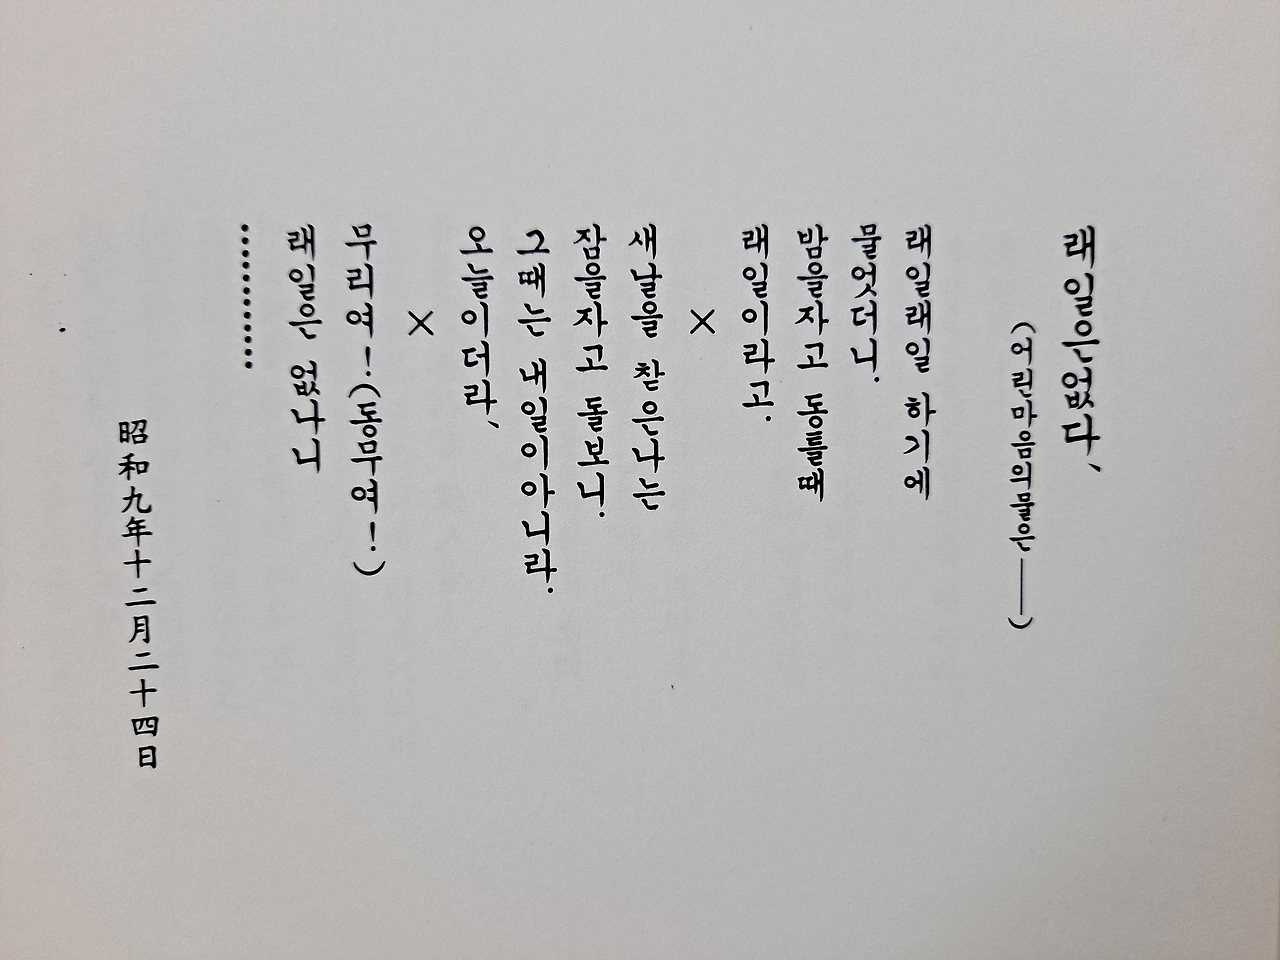 래일은없다、
(어린마음의물은——)
래일래일 하기에
물엇더니.
밤을자고 동틀때
래일이라고.
×
새날을 찾은나는
잠을자고 돌보니.
그때는 내일이아니라.
오늘이더라、
×
무리여!(동무여!)
래일은 없나니
…………
昭和九年十二月二十四日